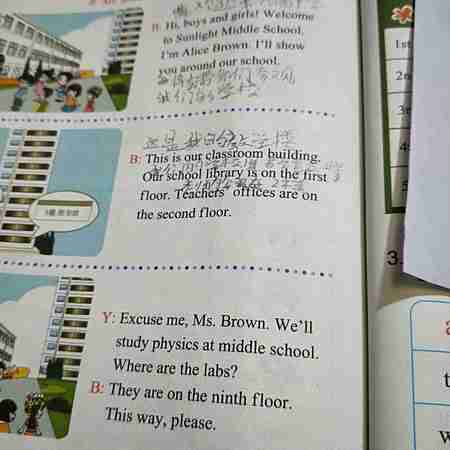 B: Hi, boys and girls! Welcome
to Sunlight Middle School.
I'm Alice Brown. I'll show
you around our school.
我们的学校
B: This is our classroom building.
Our school library is on the first
floor. Teachers' offices are on
the second floor.
Y: Excuse me, Ms. Brown. We'll
study physics at middle school.
Where are the labs?
B: They are on the ninth floor.
This way, please.
1st
3.